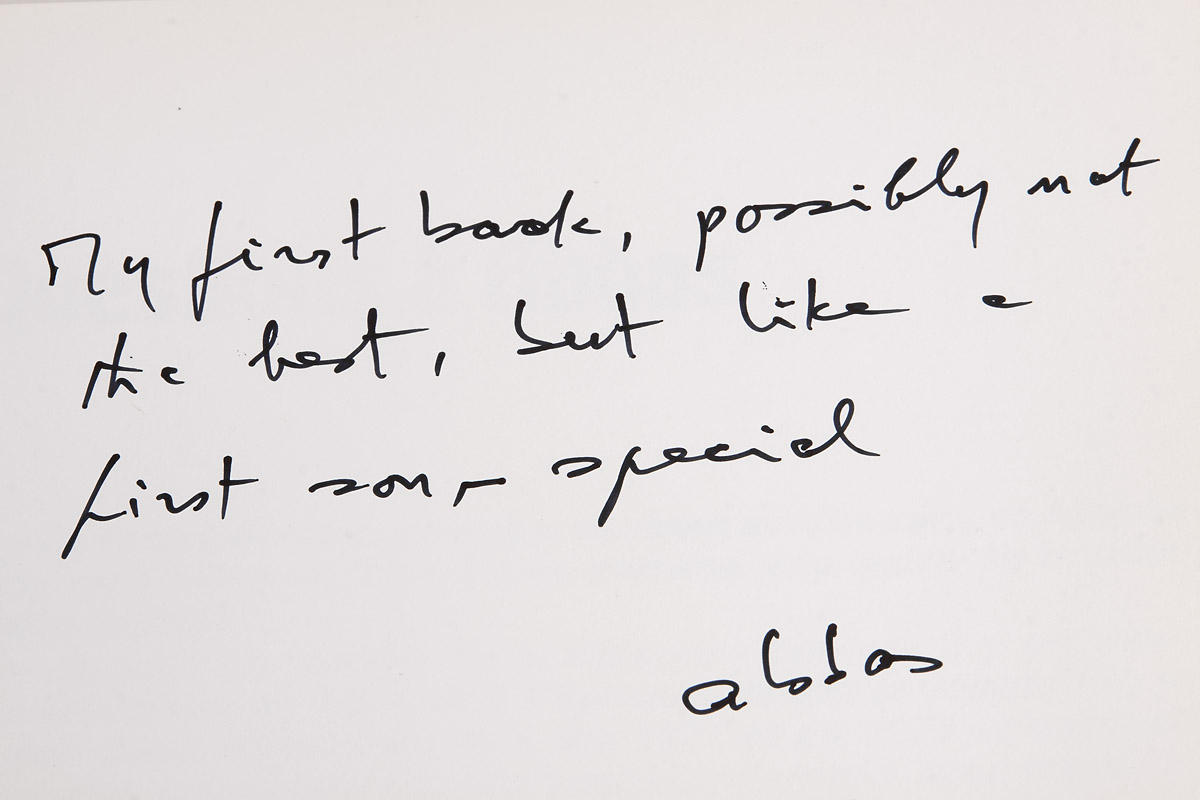 My first book, possibly not
the best, but like a
first son, - special
abbas